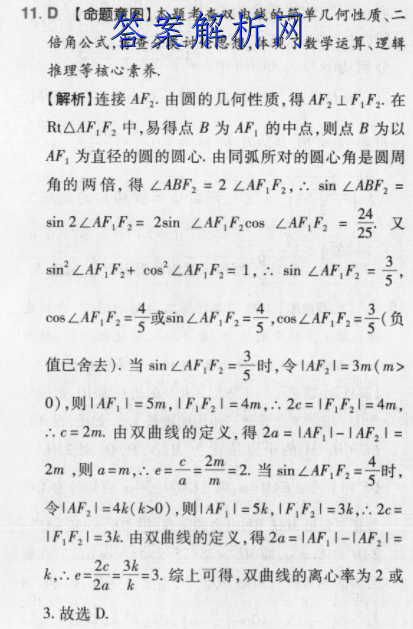 11. D 【命题意图】本题考查双曲线的简单几何性质、二
答案解析网
倍角公式,考查分类讨论思想,体现了数学运算、逻辑
推理等核心素养.
【解析】连接 AF₂. 由圆的几何性质,得 AF₂⊥F₁F₂. 在
Rt△AF₁F₂ 中,易得点 B 为 AF₁ 的中点,则点 B 为以
AF₁ 为直径的圆的圆心. 由同弧所对的圆心角是圆周
角的两倍,得 ∠ABF₂ = 2 ∠AF₁F₂,∴ sin ∠ABF₂ =
sin 2∠AF₁F₂ = 2sin ∠AF₁F₂cos ∠AF₁F₂ = 24/25. 又
sin²∠AF₁F₂+ cos²∠AF₁F₂ = 1,∴ sin ∠AF₁F₂ = 3/5,
cos∠AF₁F₂=4/5或sin∠AF₁F₂=4/5,cos∠AF₁F₂=3/5(负
值已舍去). 当 sin∠AF₁F₂=3/5时,令|AF₂|=3m(m>
0),则|AF₁|=5m,|F₁F₂|=4m,∴ 2c=|F₁F₂|=4m,
∴ c=2m. 由双曲线的定义,得 2a=|AF₁|-|AF₂|=
2m,则 a=m,∴ e=c/a=2m/m=2. 当 sin∠AF₁F₂=4/5时,
令|AF₂|=4k(k>0),则|AF₁|=5k,|F₁F₂|=3k,∴ 2c=
|F₁F₂|=3k. 由双曲线的定义,得 2a=|AF₁|-|AF₂|=
k,∴ e=2c/2a=3k/k=3. 综上可得,双曲线的离心率为 2 或
3. 故选 D.